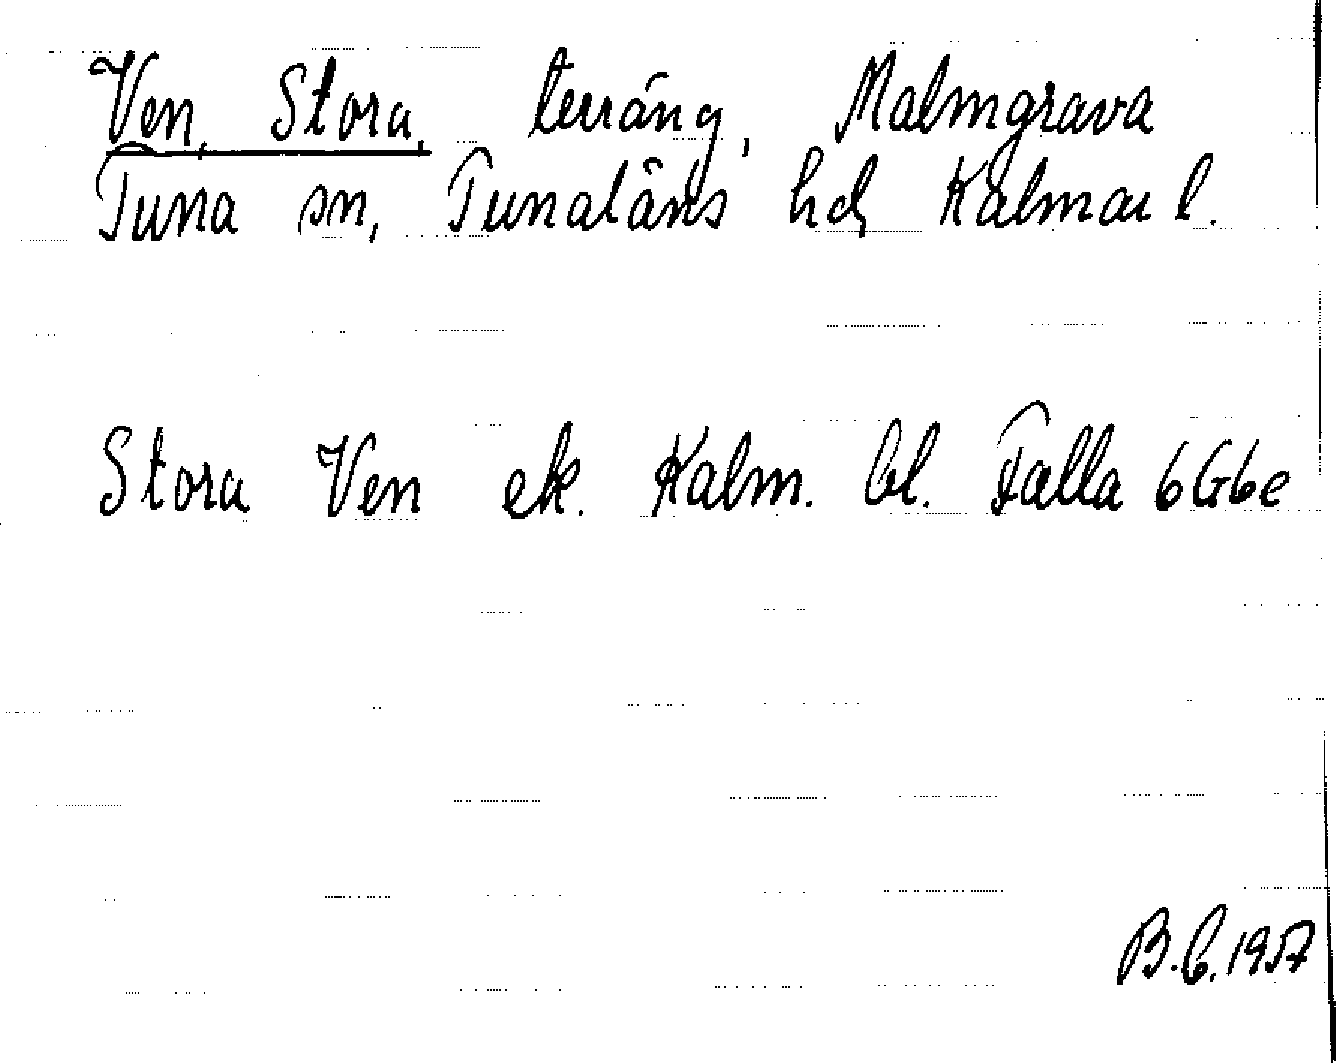 Ven, Stora, terräng, Malmgrava
Tuna sn, Tunaläns hd, Kalmar l.
Stora Ven ek. Kalm. bl. Falla 6G6e
B.C. 1957